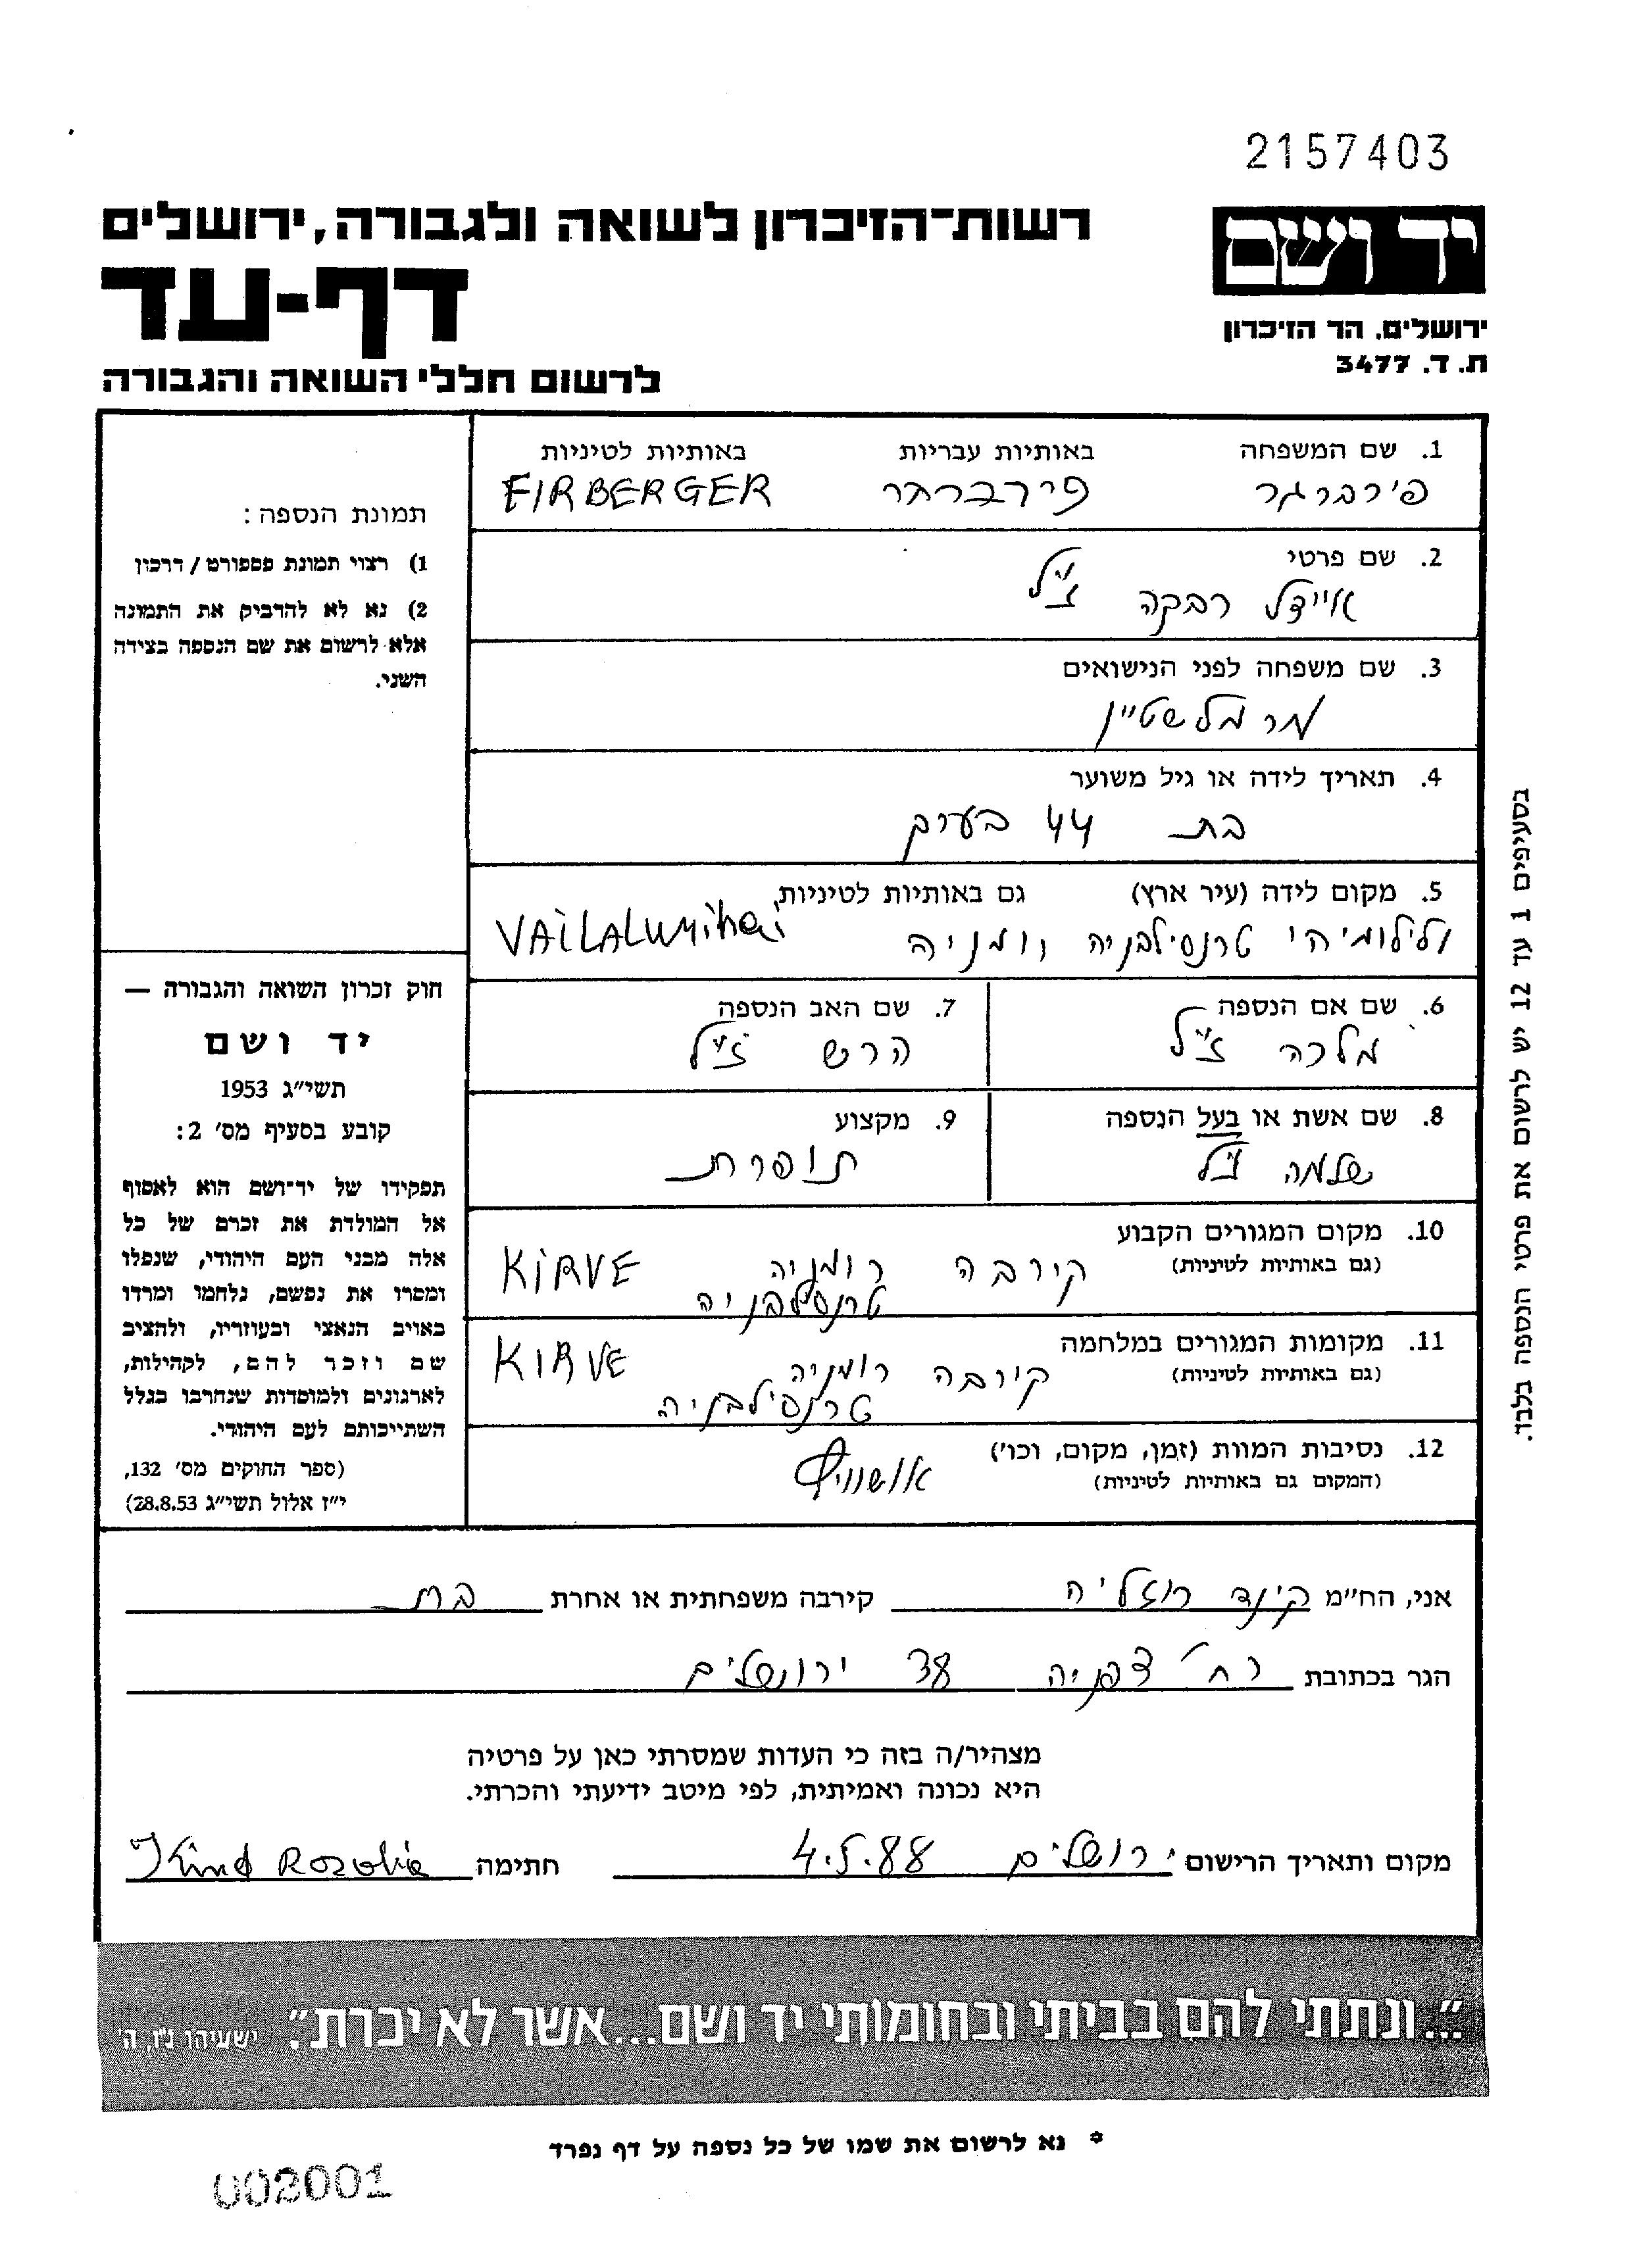 2157403
יד ושם
ירושלים. הר הזיכרון
ת. ד. 3477
רשות-הזיכרון לשואה ולגבורה, ירושלים
דף-עד
לרשום חללי השואה והגבורה
1. שם המשפחה באותיות עבריות באותיות לטיניות
פירברגר פירברגר FIRBERGER
2. שם פרטי
איידל רבקה ז"ל
3. שם משפחה לפני הנישואים
מרמלשטיין
4. תאריך לידה או גיל משוער
בת 44 בערך
5. מקום לידה (עיר ארץ) גם באותיות לטיניות
ולילומיהי טרנסילבניה רומניה VAiLALUMihai
6. שם אם הנספה
מלכה ז"ל
7. שם האב הנספה
הרש ז"ל
8. שם אשת או בעל הנספה
שלמה ז"ל
9. מקצוע
תופרת
10. מקום המגורים הקבוע
(גם באותיות לטיניות)
קירבה רומניה KiRVE
טרנסילבניה
11. מקומות המגורים במלחמה
(גם באותיות לטיניות)
קירבה רומניה KIRVE
טרנסילבניה
12. נסיבות המוות (זמן, מקום, וכו')
(המקום גם באותיות לטיניות)
אושוויץ
תמונת הנספה:
1) רצוי תמונת פספורט / דרכון
2) נא לא להדביק את התמונה
אלא לרשום את שם הנספה בצידה
השני.
חוק זכרון השואה והגבורה —
יד ושם
תשי"ג 1953
קובע בסעיף מס' 2:
תפקידו של יד-ושם הוא לאסוף
אל המולדת את זכרם של כל
אלה מבני העם היהודי, שנפלו
ומסרו את נפשם, נלחמו ומרדו
באויב הנאצי ובעוזריו, ולהציב
שם וזכר להם, לקהילות,
לארגונים ולמוסדות שנחרבו בגלל
השתייכותם לעם היהודי.
(ספר החוקים מס' 132,
י"ז אלול תשי"ג 28.8.53)
בסעיפים 1 עד 12 יש לרשום את פרטי הנספה בלבד.
אני, הח"מ קינד רוזליה קירבה משפחתית או אחרת בת
הגר בכתובת רח' צפניה 38 ירושלים
מצהיר/ה בזה כי העדות שמסרתי כאן על פרטיה
היא נכונה ואמיתית, לפי מיטב ידיעתי והכרתי.
מקום ותאריך הרישום ירושלים 4.5.88 חתימה Kind Rozolie
"...ונתתי להם בביתי ובחומותי יד ושם...אשר לא יכרת". ישעיהו נ"ו, ה'
* נא לרשום את שמו של כל נספה על דף נפרד
002001